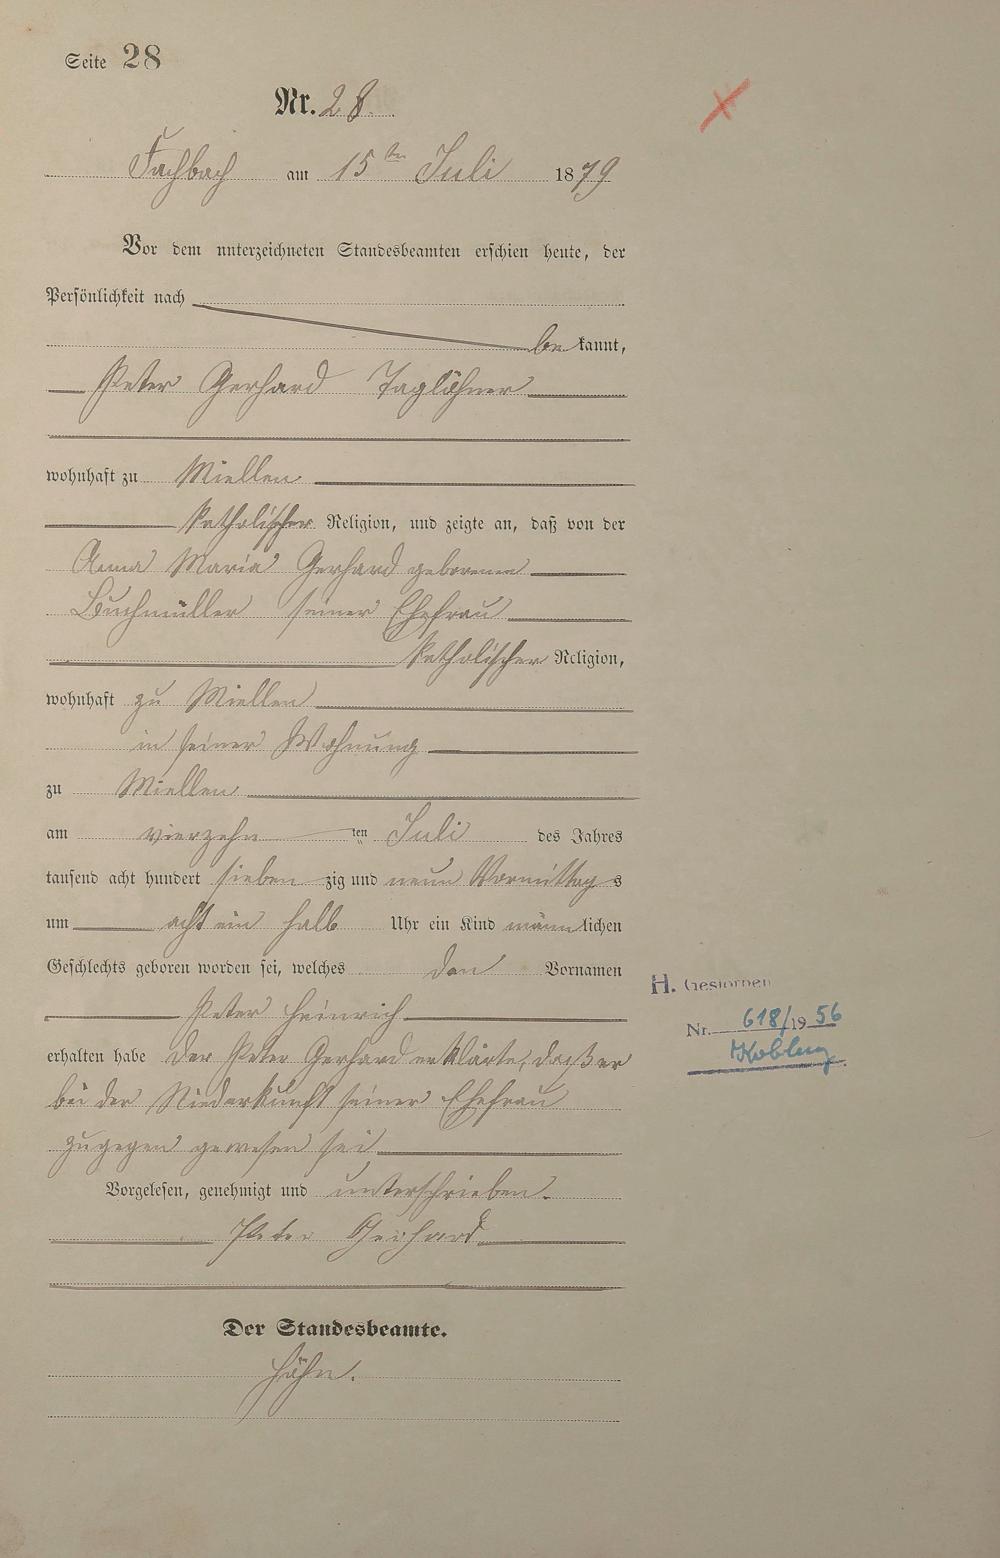 Seite 28
Nr. 28.
Fachbach am 15ten Juli 1879
Vor dem unterzeichneten Standesbeamten erschien heute, der
Persönlichkeit nach
be kannt,
Peter Gerhard Taglöhner
wohnhaft zu Miellen
katholischer Religion, und zeigte an, daß von der
Anna Maria Gerhard geborenen
Buchmüller seiner Ehefrau
katholischer Religion,
wohnhaft zu Miellen
in seiner Wohnung
zu Miellen
am vierzehn ten Juli des Jahres
tausend acht hundert sieben zig und neun Vormittag s
um acht ein halb Uhr ein Kind männlichen
Geschlechts geboren worden sei, welches den Vornamen
Peter Heinrich
H. Gestorben
Nr. 618/1956
Koblenz
erhalten habe Der Peter Gerhard erklärte, daß er
bei der Niederkunft seiner Ehefrau
zugegen gewesen sei
Vorgelesen, genehmigt und unterschrieben.
Peter Gerhard
Der Standesbeamte.
Höhn.